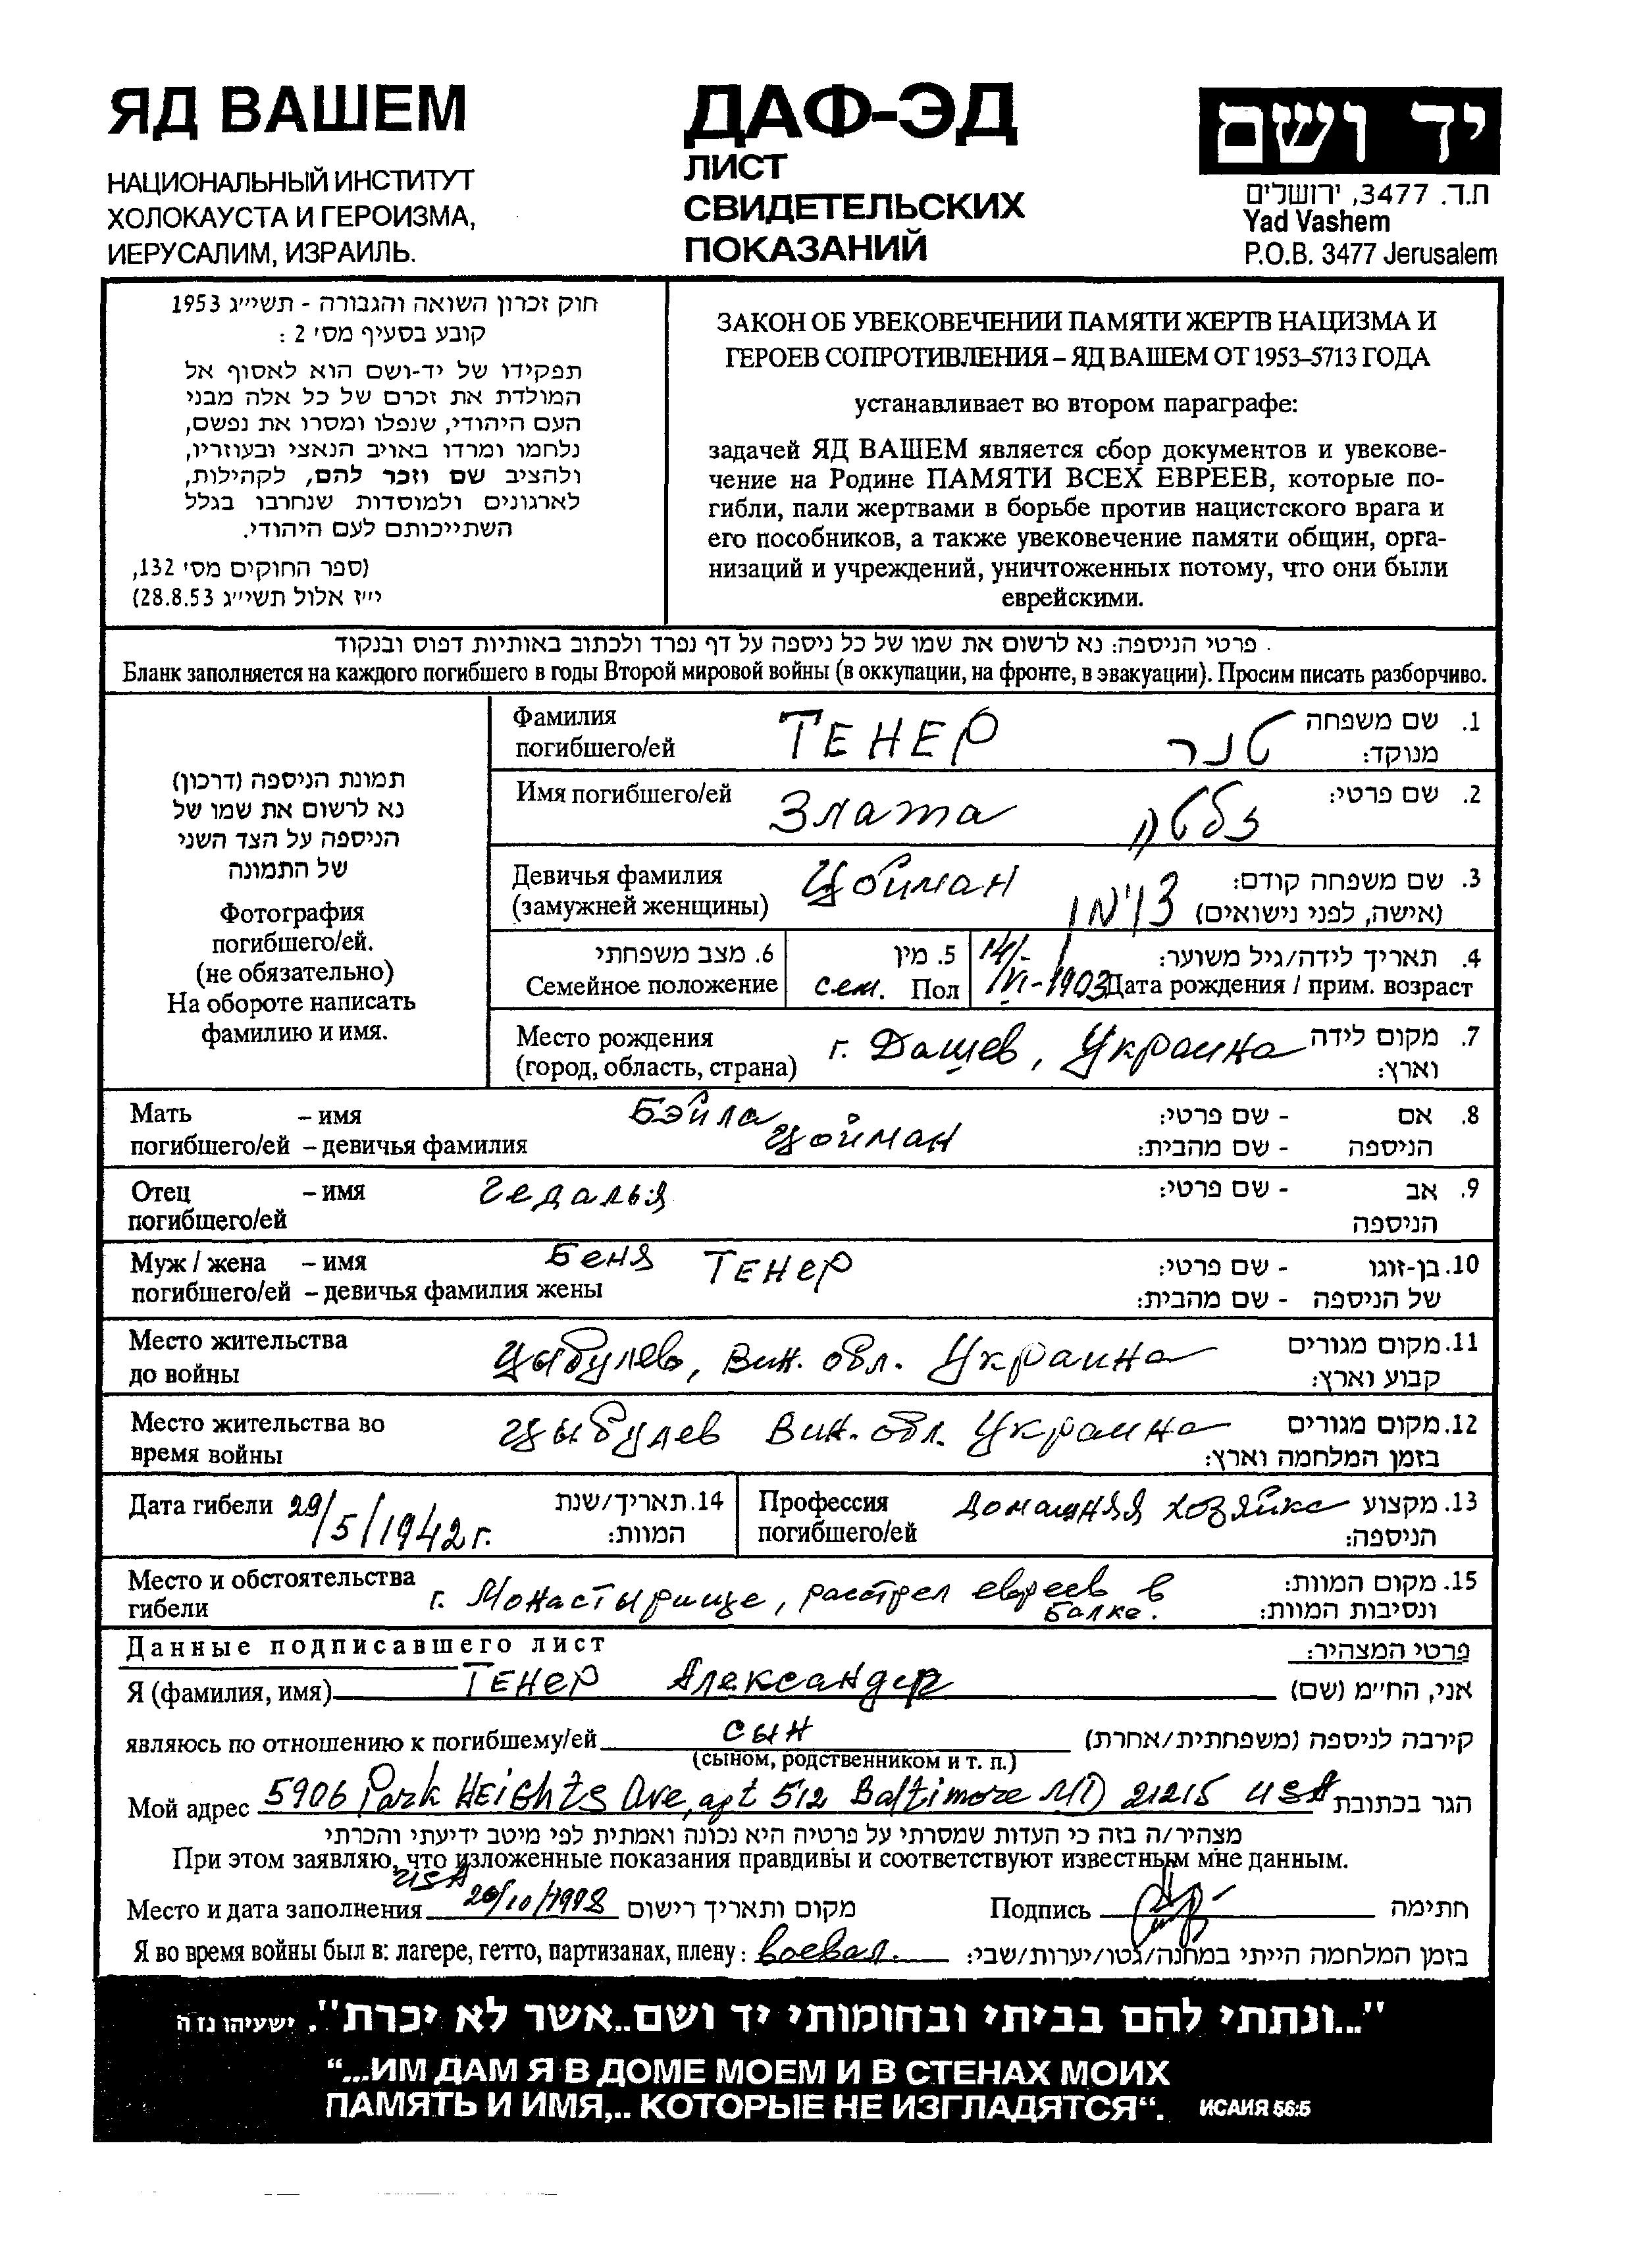 ЯД ВАШЕМ
НАЦИОНАЛЬНЫЙ ИНСТИТУТ
ХОЛОКАУСТА И ГЕРОИЗМА,
ИЕРУСАЛИМ, ИЗРАИЛЬ.
ДАФ-ЭД
ЛИСТ
СВИДЕТЕЛЬСКИХ
ПОКАЗАНИЙ
יד ושם
ת.ד. 3477, ירושלים
Yad Vashem
P.O.B. 3477 Jerusalem
חוק זכרון השואה והגבורה - תשי״ג 1953
קובע בסעיף מס׳ 2 :
תפקידו של יד-ושם הוא לאסוף אל
המולדת את זכרם של כל אלה מבני
העם היהודי, שנפלו ומסרו את נפשם,
נלחמו ומרדו באויב הנאצי ובעוזריו,
ולהציב שם וזכר להם, לקהילות,
לארגונים ולמוסדות שנחרבו בגלל
השתייכותם לעם היהודי.
(ספר החוקים מס׳ 132,
י״ז אלול תשי״ג 28.8.53)
ЗАКОН ОБ УВЕКОВЕЧЕНИИ ПАМЯТИ ЖЕРТВ НАЦИЗМА И
ГЕРОЕВ СОПРОТИВЛЕНИЯ – ЯД ВАШЕМ ОТ 1953–5713 ГОДА
устанавливает во втором параграфе:
задачей ЯД ВАШЕМ является сбор документов и увекове-
чение на Родине ПАМЯТИ ВСЕХ ЕВРЕЕВ, которые по-
гибли, пали жертвами в борьбе против нацистского врага и
его пособников, а также увековечение памяти общин, орга-
низаций и учреждений, уничтоженных потому, что они были
еврейскими.
פרטי הניספה: נא לרשום את שמו של כל ניספה על דף נפרד ולכתוב באותיות דפוס ובנקוד
Бланк заполняется на каждого погибшего в годы Второй мировой войны (в оккупации, на фронте, в эвакуации). Просим писать разборчиво.
תמונת הניספה (דרכון)
נא לרשום את שמו של
הניספה על הצד השני
של התמונה
Фотография
погибшего/ей.
(не обязательно)
На обороте написать
фамилию и имя.
Фамилия ТЕНЕР טנר 1. שם משפחה
погибшего/ей מנוקד:
Имя погибшего/ей Злата זלטה 2. שם פרטי:
Девичья фамилия Цойман צוימן 3. שם משפחה קודם:
(замужней женщины) (אישה, לפני נישואים)
6. מצב משפחתי 5. מין 14/- 4. תאריך לידה/גיל משוער:
Семейное положение сем. Пол VI-1903 Дата рождения / прим. возраст
Место рождения г. Дашев, Украина 7. מקום לידה
(город, область, страна) וארץ:
Мать – имя Бэйла - שם פרטי: 8. אם
погибшего/ей – девичья фамилия Цойман - שם מהבית: הניספה
Отец – имя Гедалья - שם פרטי: 9. אב
погибшего/ей הניספה
Муж / жена – имя Беня Тенер - שם פרטי: 10. בן-זוגו
погибшего/ей – девичья фамилия жены - שם מהבית: של הניספה
Место жительства Цыбулев, Вин. обл. Украина 11. מקום מגורים
до войны קבוע וארץ:
Место жительства во Цыбулев Вин. обл. Украина 12. מקום מגורים
время войны בזמן המלחמה וארץ:
Дата гибели 29/5/1942 г. 14. תאריך/שנת
המוות:
Профессия Домашняя хозяйка 13. מקצוע
погибшего/ей הניספה:
Место и обстоятельства г. Монастырище, расстрел евреев в 15. מקום המוות:
гибели балке. ונסיבות המוות:
Данные подписавшего лист פרטי המצהיר:
Я (фамилия, имя) Тенер Александер אני, הח״מ (שם)
являюсь по отношению к погибшему/ей сын קירבה לניספה (משפחתית/אחרת)
(сыном, родственником и т. п.)
Мой адрес 5906 Park Heights Ave, apt 512 Baltimore MD 21215 USA הגר בכתובת
מצהיר/ה בזה כי העדות שמסרתי על פרטיה היא נכונה ואמתית לפי מיטב ידיעתי והכרתי
При этом заявляю, что изложенные показания правдивы и соответствуют известным мне данным.
USA
Место и дата заполнения 20/10/1998 מקום ותאריך רישום Подпись חתימה
Я во время войны был в: лагере, гетто, партизанах, плену: воевал. בזמן המלחמה הייתי במחנה/גטו/יערות/שבי:
"...ונתתי להם בביתי ובחומותי יד ושם..אשר לא יכרת". ישעיהו נז ה
“...ИМ ДАМ Я В ДОМЕ МОЕМ И В СТЕНАХ МОИХ
ПАМЯТЬ И ИМЯ,.. КОТОРЫЕ НЕ ИЗГЛАДЯТСЯ“. ИСАИЯ 56:5